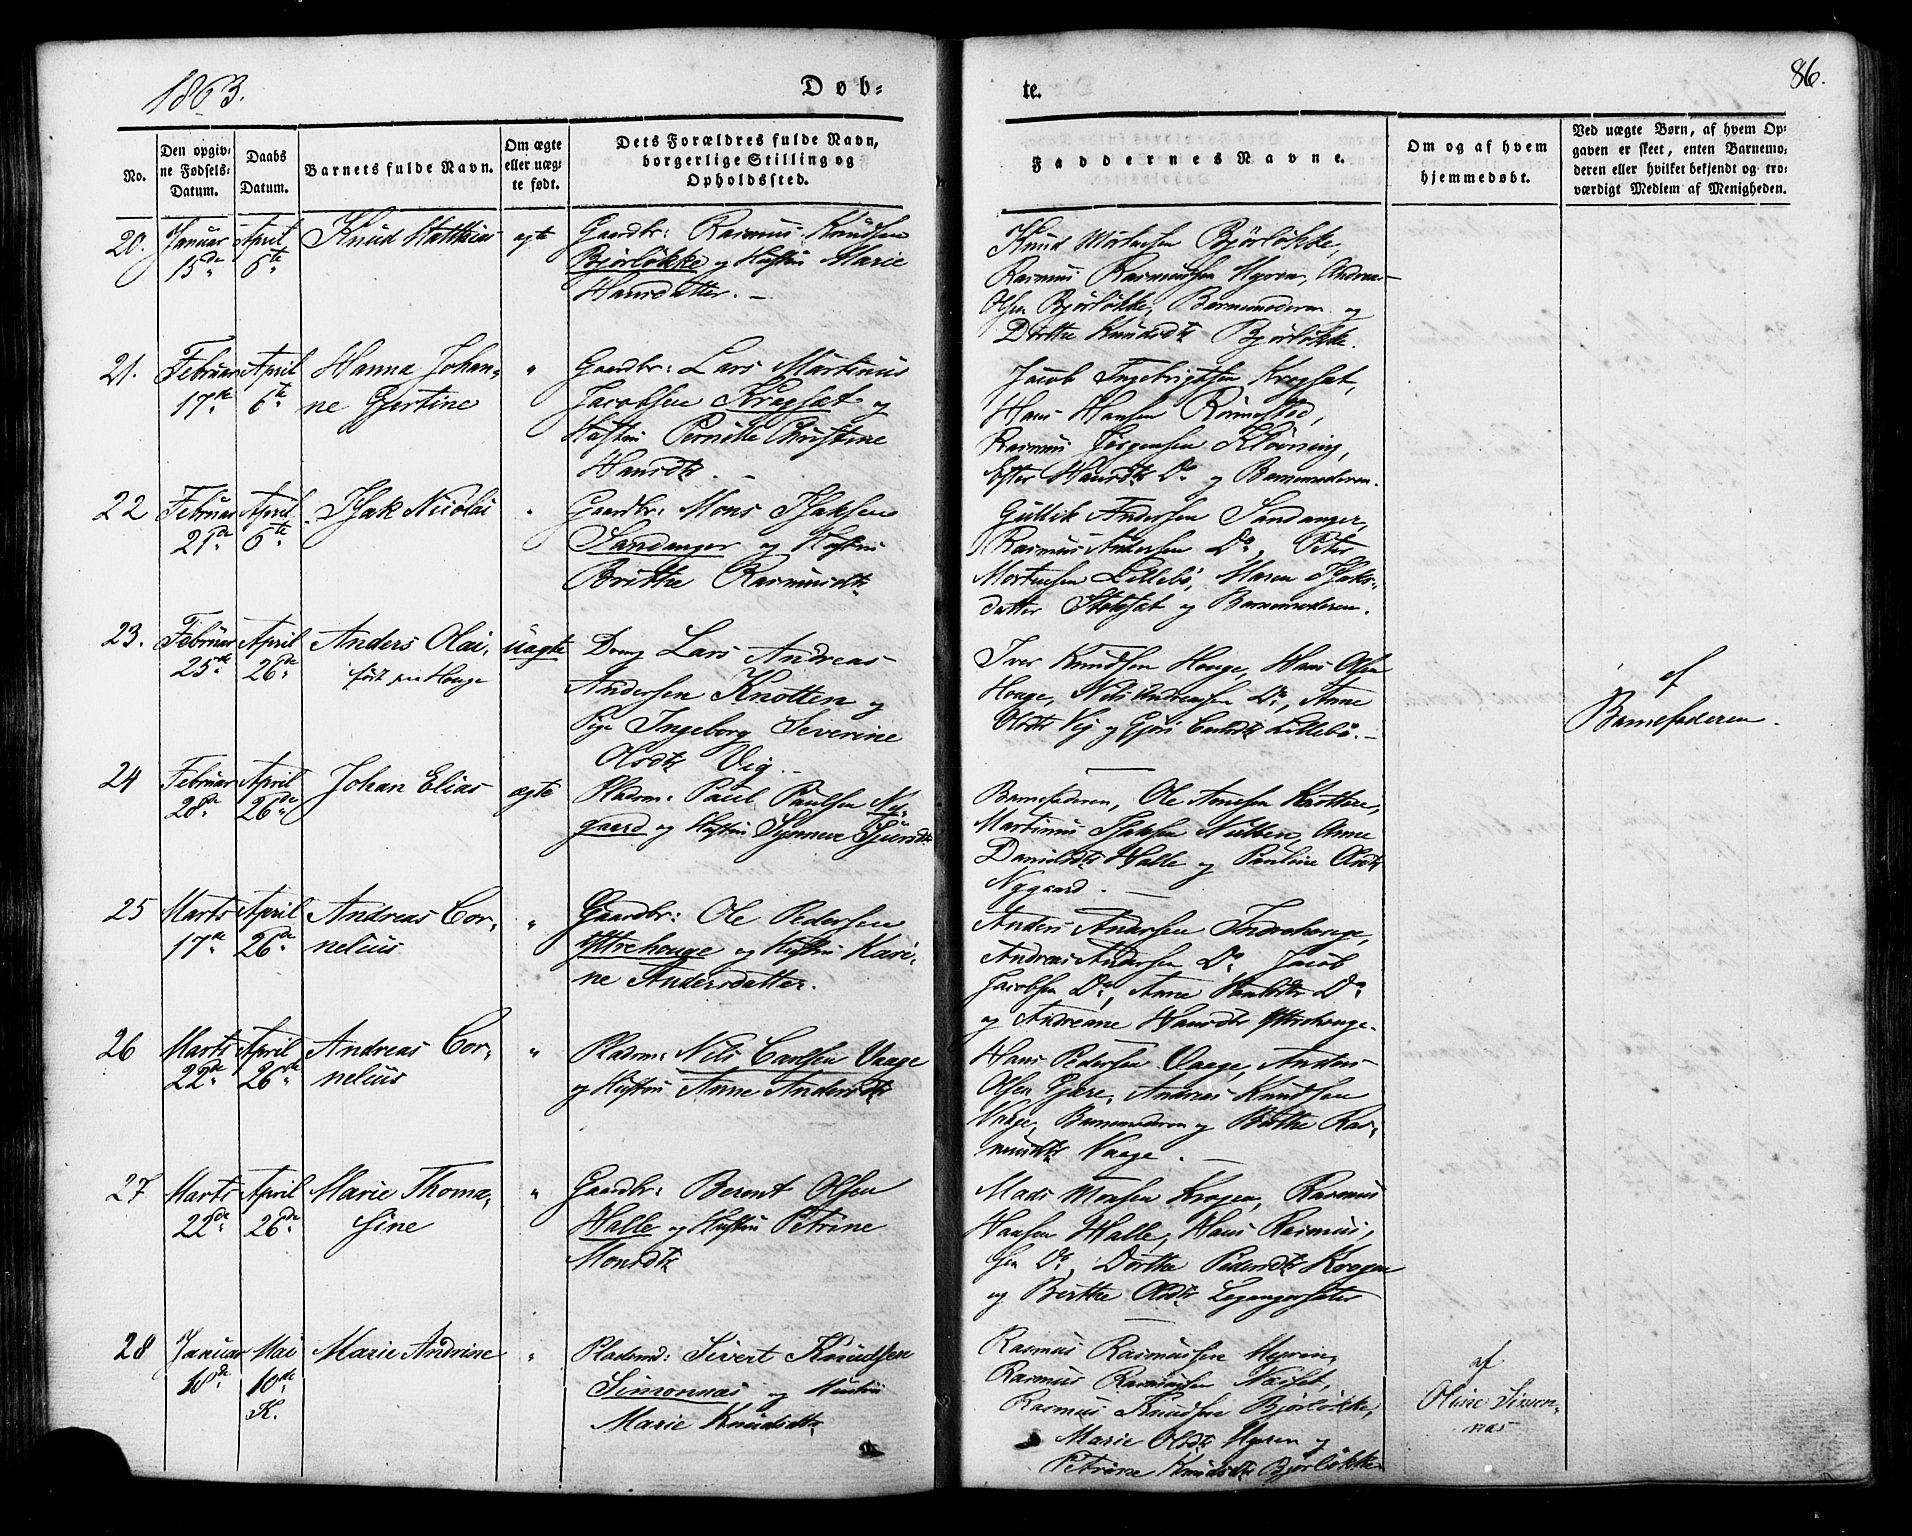 1863.
Døb-
te.
86.
No.
Den opgiv-
ne Fødsels-
Datum.
Daabs
Datum.
Barnets fulde Navn.
Om ægte
eller uæg-
te født.
Dets Forældres fulde Navn,
borgerlige Stilling og
Opholdssted.
Faddernes Navne.
Om og af hvem
hjemmedøbt.
Ved uægte Børn, af hvem Op-
gaven er skeet, enten Barnemo-
deren eller hvilket bekjendt og tro-
værdigt Medlem af Menigheden.
20.
Januar
15de
April
6te
Knud Matthias
ægte
Gaardbr: Rasmus Knudsen
Bjørløkke og Hustru Marie
Hansdatter. –
Knud Mortensen Bjørløkke,
Rasmus Rasmussen Myren, Andreas
Olsen Bjørløkke, Barnemoderen og
Dorthe Knudsdtr Bjørløkke.
21.
Februar
17de
April
6te
Hanna Johan-
ne Gjertine
"
Gaardbr: Lars Martinus
Jacobsen Krogsæt og
Hustru Pernille Christine
Hansdtr. –
Jacob Ingebrigtsen Krogsæt,
Hans Hansen Rømestad,
Rasmus Jørgensen Kløvning,
Ester Hansdtr Do og Barnemoderen.
22
Februar
21de
April
6te
Isak Nicolai
"
Gaardbr: Mons Isaksen
Sandanger og Hustru
Brithe Rasmusdtr
Gullik Andersen Sandanger,
Rasmus Andersen Do, Peter
Mortensen Lillebø, Maren Isaks-
datter Stokset og Barnemoderen.
23.
Februar
25de
April
26de
Anders Olai,
født paa Houge
uægte
Dreng Lars Andreas
Andersen Knotten og
Pige Ingeborg Severine
Olsdtr Vig. –
Iver Knudsen Houge, Hans Olsen
Houge, Nils Andreassen Do, Anne
Olsdtr Vig og Gjøri Carlsdtr Lillebø. –
af
Barnefaderen.
24
Februar
28de
April
26de
Johan Elias
ægte
Pladsm: Paul Paulsen Ny-
gaard og Hustru Synneve Sjursdtr
Barnefaderen, Ole Arnesen Knotten,
Martinus Isaksen Nubben, Anne
Danielsdtr Halle og Pauline Olsdtr
Nygaard. –
25
Marts
17de
April
26de
Andreas Cor-
nelius
"
Gaardbr: Ole Pedersen
Yttrehouge og Hustru Kari-
ne Andersdatter.
Anders Andersen Indrehouge,
Andreas Andersen Do Jacob
Jacobsen Do, Anne Do
og Andreane Hansdtr Yttrehouge.
26
Marts
22de
April
26de
Andreas Cor-
nelius
"
Pladsm: Nils Carlsen Vaage
og Hustru Anne Andersdtr
Hans Pedersen Vaage, Anders
Olsen Gjære, Andreas Knudsen
Vaage, Barnemoderen og Berthe Ras-
musdtr Vaage. –
27
Marts
22de
April
26de
Marie Thoma-
sine
"
Gaardbr: Berent Olsen
Halle og Hustru Petrine
Monsdtr
Mads Monsen Krogen, Rasmus
Hansen Halle, Hans Rasmus-
sen Do, Dorthe Pedersdtr Krogen
og Berthe Olsdtr Legangersæter
28
Januar
18de
Mai
10de
K.
Marie Andrine
"
Pladsmd: Sivert Knudsen
Simonnæs og Hustru
Marie Knudsdtr
Rasmus Rasmussen Myren,
Rasmus Rasmussen Næsset,
Rasmus Knudsen Bjørløkke,
Marie Olsdtr Myren og
Petrine Knudsdtr Bjørløkke
af
Oline Simon-
næs